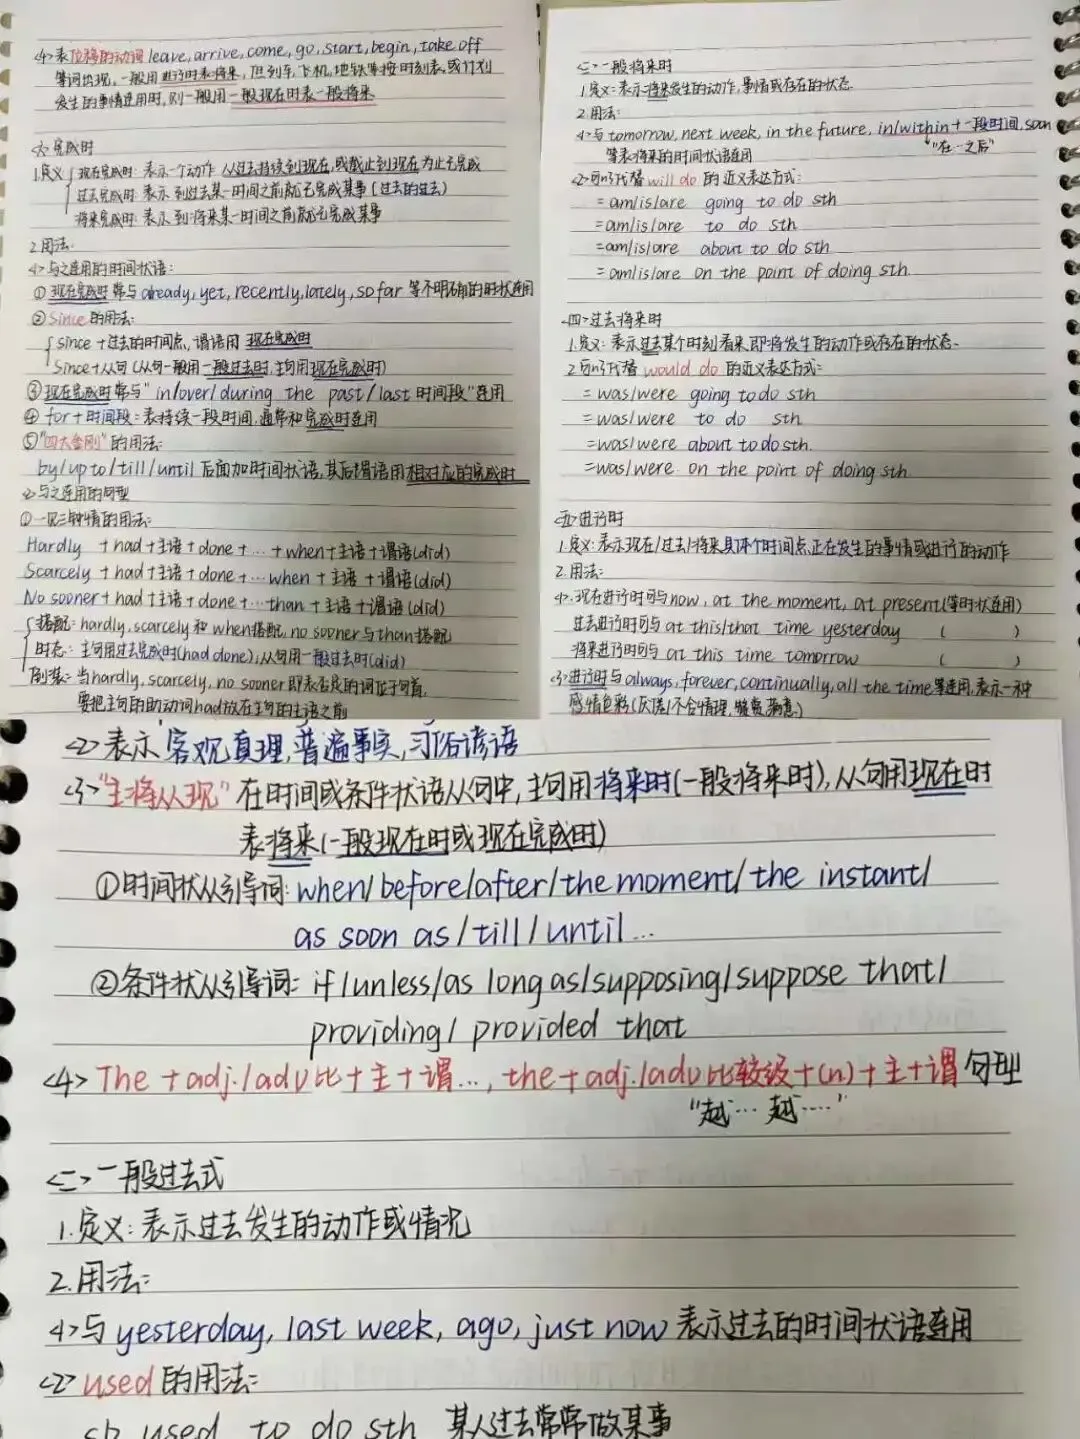 <4>表位移的动词 leave, arrive, come, go, start, begin, take off
等词出现,一般用进行时表将来,但列车,飞机,地铁等按时刻表,或计划
发生的事情连用时,则一般用一般现在时表一般将来
<六>完成时
1.定义 现在完成时: 表示一个动作 从过去持续到现在,或截止到现在为止已完成
过去完成时: 表示到过去某一时间之前就已完成某事(过去的过去)
将来完成时: 表示到将来某一时间之前就已完成某事
2.用法:
<1>与之连用的时间状语:
①现在完成时常与already, yet, recently, lately, so far 等不明确的时状连用
②Since的用法:
since+过去的时间点,谓语用 现在完成时
Since+从句(从句一般用一般过去时,主句用现在完成时)
③现在完成时常与"in/over/during the past/last 时间段"连用
④for+时间段:表持续一段时间,通常和完成时连用
⑤"四大金刚"的用法:
by/up to/till/until 后面加时间状语,其后谓语用相对应的完成时
<2>与之连用的句型
①一见三钟情的用法:
Hardly +had+主语+done+…+when+主语+谓语(did)
Scarcely +had+主语+done+…when+主语+谓语(did)
No sooner+had+主语+done+…than+主语+谓语(did)
搭配: hardly, scarcely和when搭配, no sooner与than搭配
时态: 主句用过去完成时(had done),从句用一般过去时(did)
倒装: 当hardly, scarcely, no sooner即表否定的词位于句首,
要把主句的助动词had放在主句的主语之前
<三>一般将来时
1.定义: 表示将来发生的动作,事情或存在的状态
2.用法:
<1>与tomorrow, next week, in the future, in/within+一段时间, soon
等表将来的时间状语连用 "在…之后"
<2>可以代替will do的近义表达方式:
=am/is/are going to do sth
=am/is/are to do sth
=am/is/are about to do sth
=am/is/are on the point of doing sth
<四>过去将来时
1.定义: 表示过去某个时刻看来即将发生的动作或存在的状态.
2.可以代替would do的近义表达方式:
=was/were going to do sth
=was/were to do sth
=was/were about to do sth.
=was/were on the point of doing sth
<五>进行时
1.定义:表示现在/过去/将来具体个时间点正在发生的事情或进行的动作
2.用法:
<1>.现在进行时可与now, at the moment, at present(等时状连用)
过去进行时可与at this/that time yesterday ( )
将来进行时可与at this time tomorrow ( )
<3>进行时与always, forever, continually, all the time等连用,表示一种
感情色彩(厌倦,不合情理,赞赏,满意)
<2>表示客观真理,普遍事实,习俗谚语
<3>"主将从现"在时间或条件状语从句中,主句用将来时(一般将来时),从句用现在时
表将来(一般现在时或现在完成时)
①时间状从引导词: when/before/after/the moment/the instant/
as soon as/till/until…
②条件状从引导词: if/unless/as long as/supposing/suppose that/
providing/ provided that
<4>The+adj./adv比+主+谓…, the+adj./adv比较级+(n)+主+谓 句型
"越…越…"
<二>一般过去式
1.定义:表示过去发生的动作或情况
2.用法:
<1>与yesterday, last week, ago, just now 表示过去的时间状语连用
<2>used的用法:
sb used to do sth 某人过去常常做某事